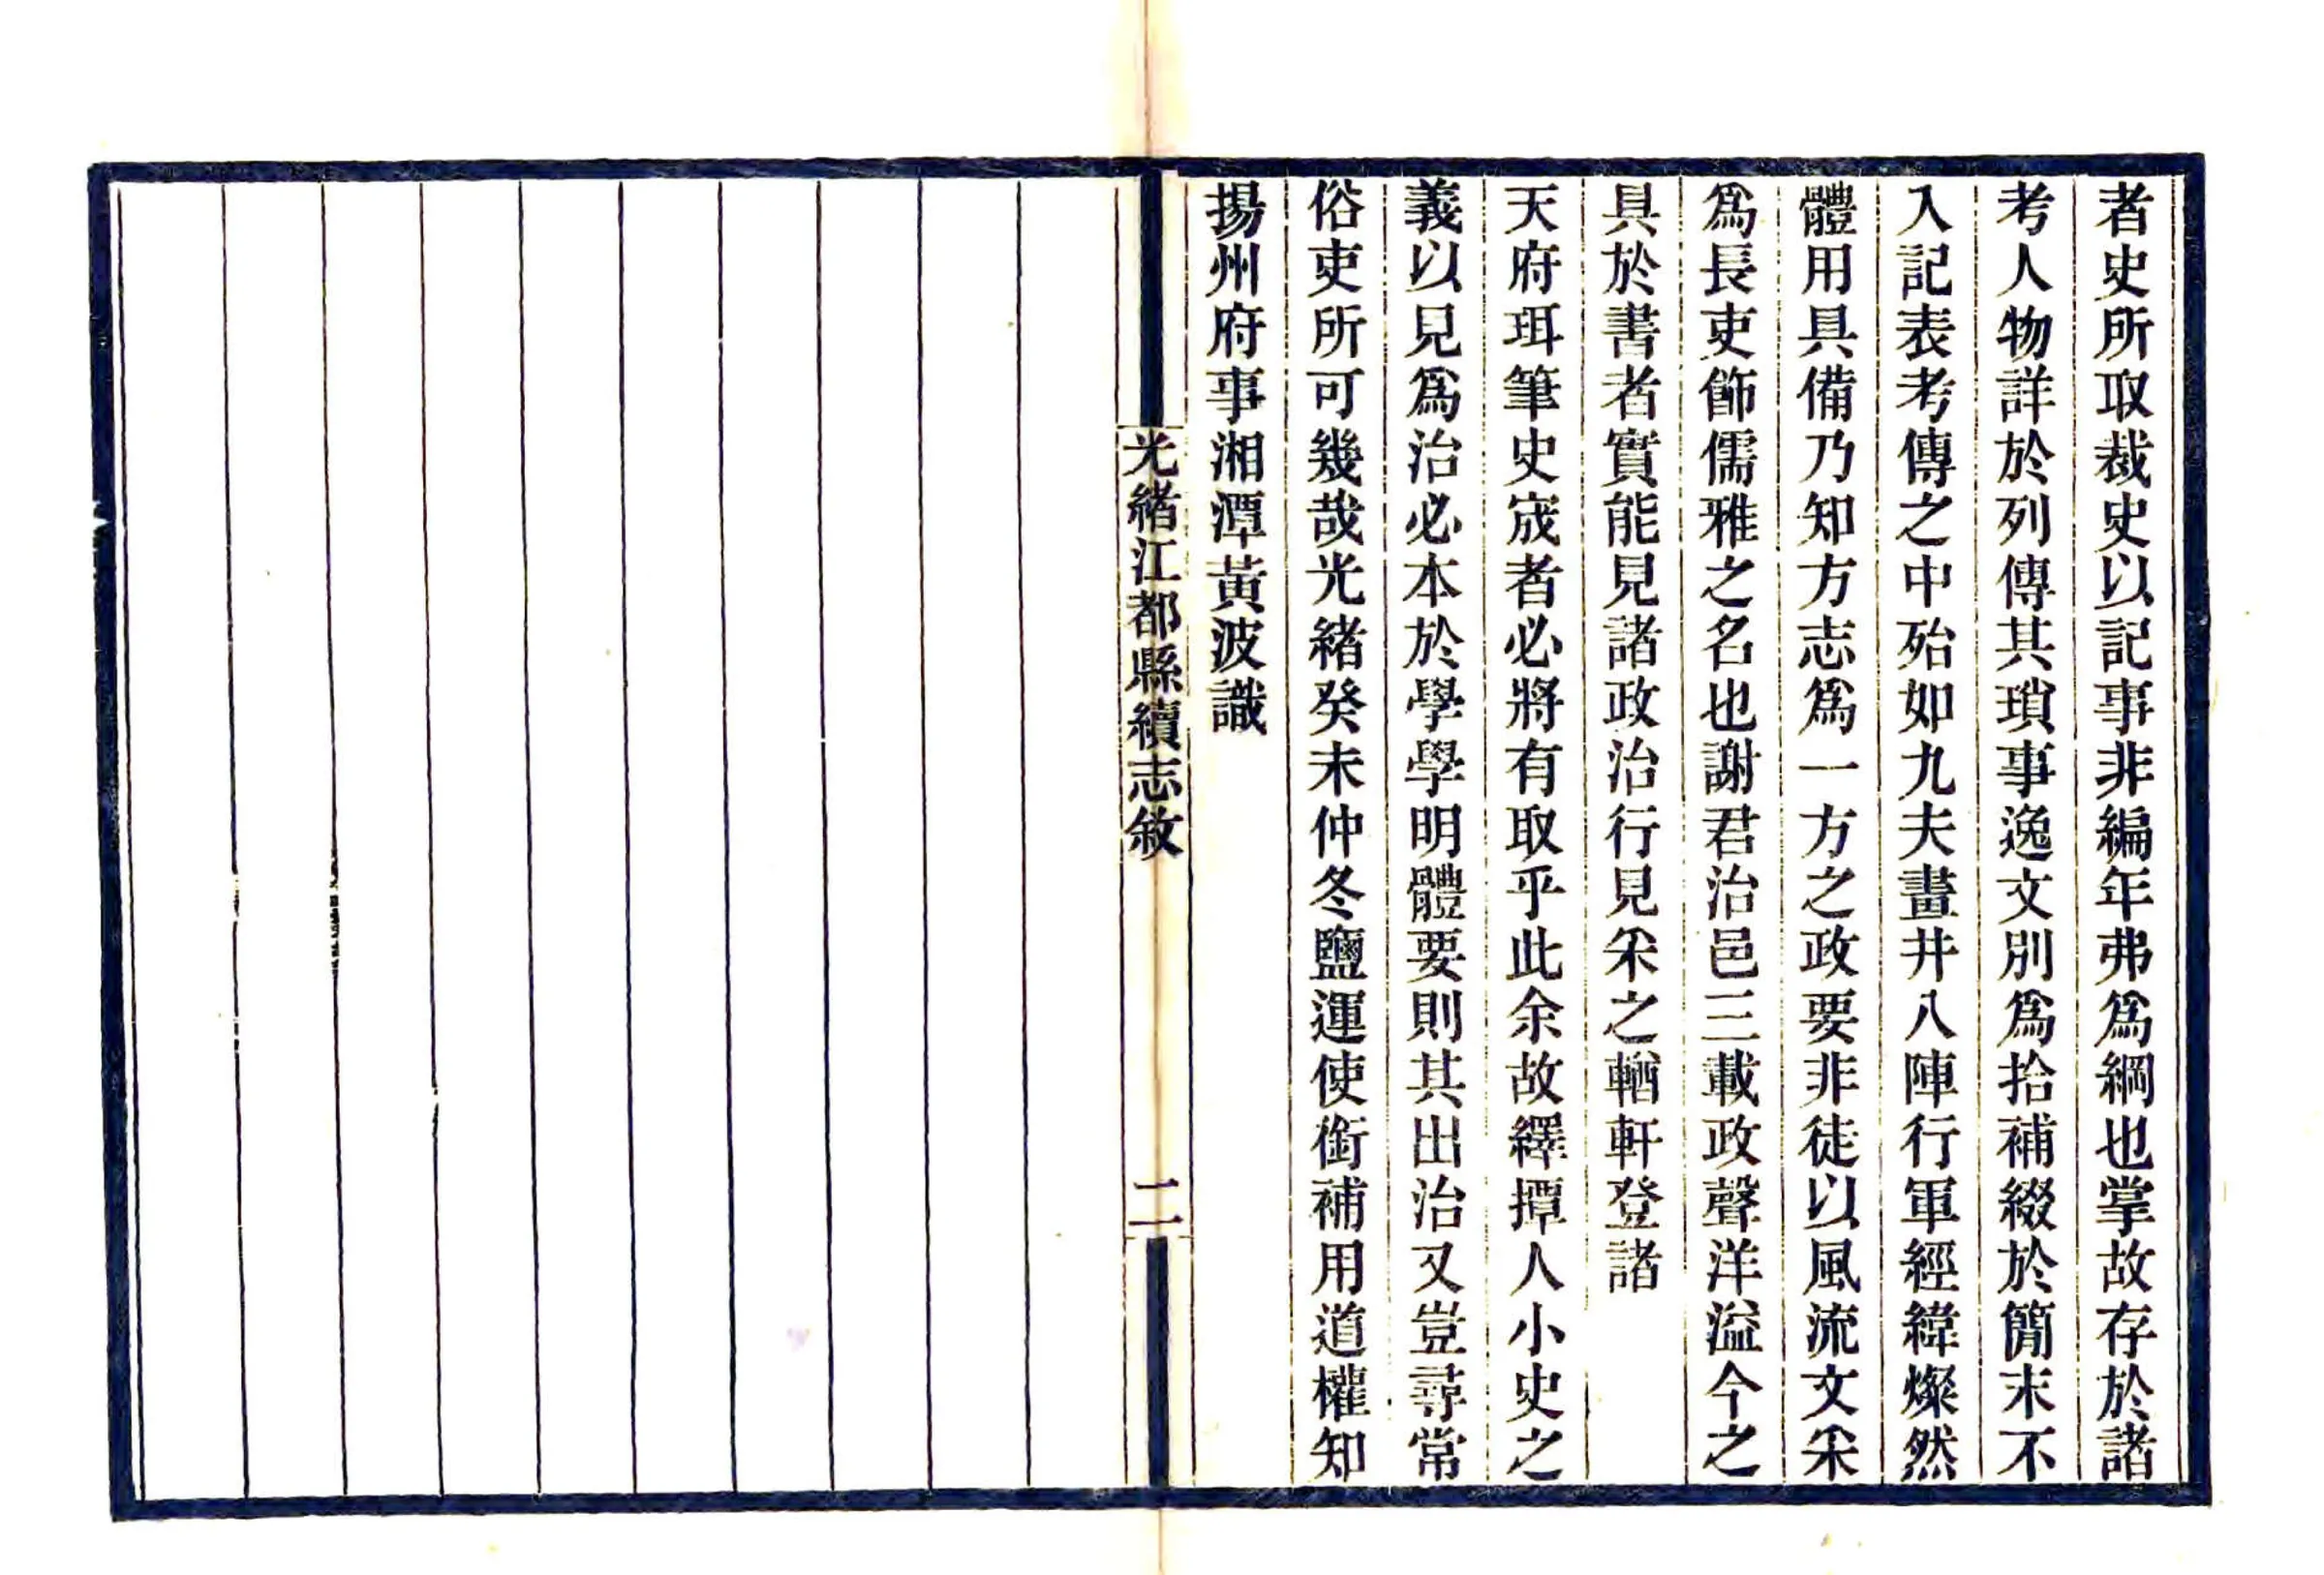 者史所取裁史以記事非編年弗爲綱也掌故存於諸
考人物詳於列傳其瑣事逸文別爲拾補綴於簡末不
入記表考傳之中殆如九夫畫井八陣行軍經緯燦然
體用具備乃知方志爲一方之政要非徒以風流文采
爲長吏飾儒雅之名也謝君治邑三載政聲洋溢今之
具於書者實能見諸政治行見采之輶軒登諸
天府珥筆史宬者必將有取乎此余故繹撢人小史之
義以見爲治必本於學學明體要則其出治又豈尋常
俗吏所可幾哉光緒癸未仲冬鹽運使銜補用道權知
揚州府事湘潭黃波識
光緒江都縣續志敘
二